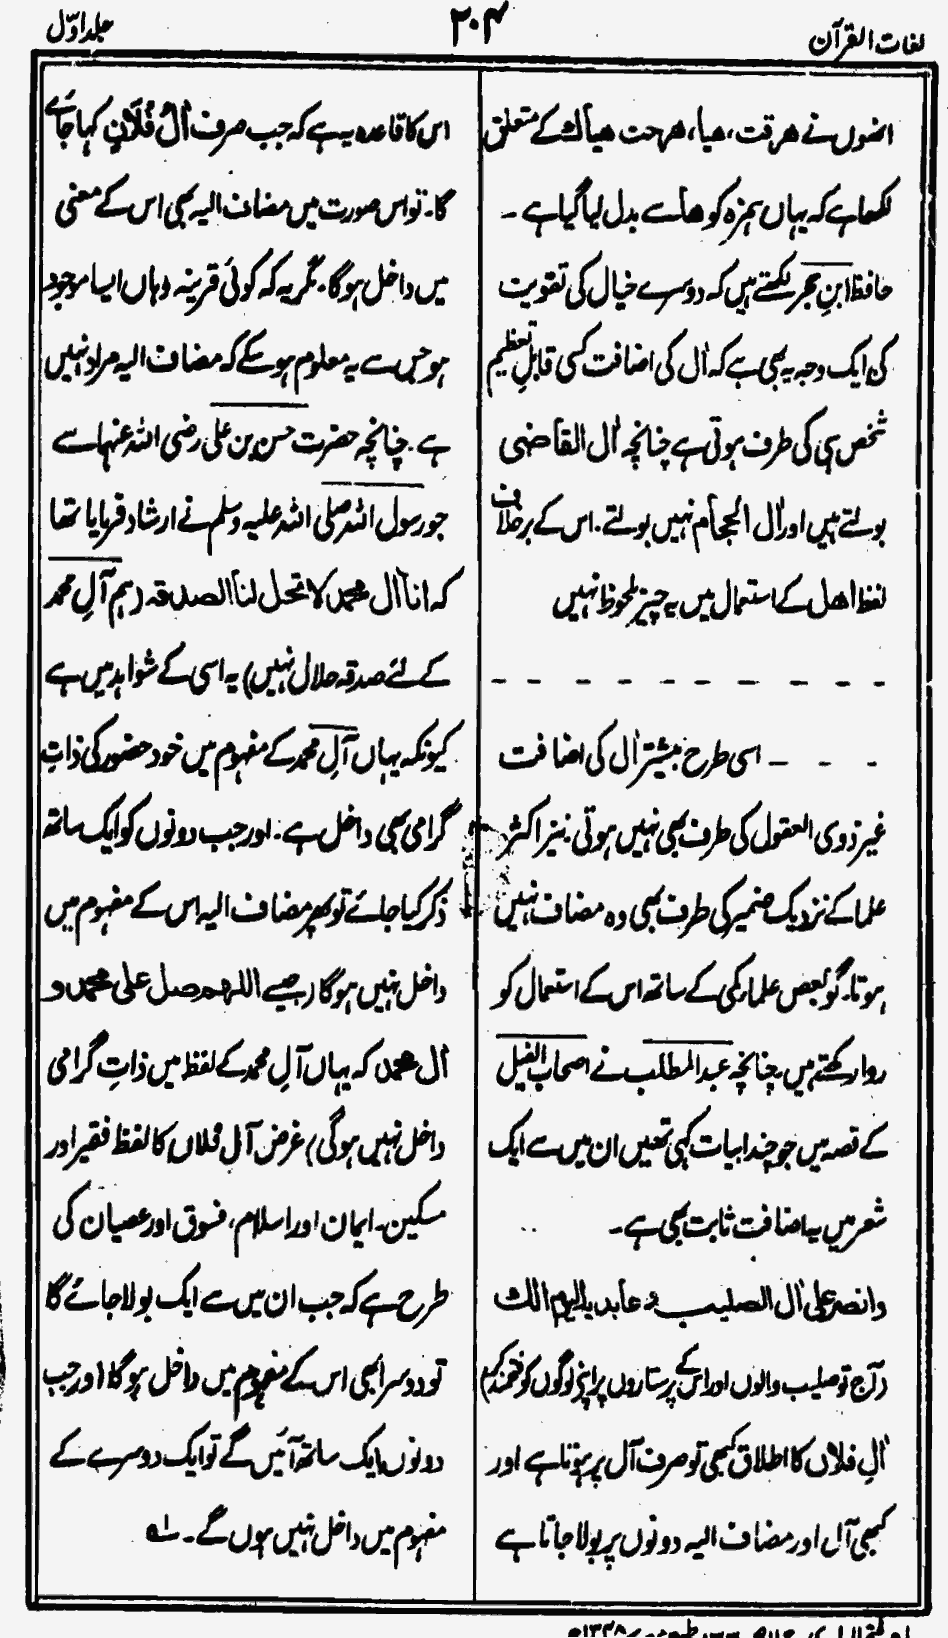 لغات القرآن
۲۰۴
جلد اوّل
انھوں نے ھرقت، ھیا، ھرحت ھیأك کے متعلق
لکھا ہے کہ یہاں ہمزہ کو ھا سے بدل لیا گیا ہے۔
حافظ ابنِ حجر لکھتے ہیں کہ دوسرے خیال کی تقویت
کی ایک وجہ یہ بھی ہے کہ اٰل کی اضافت کسی قابلِ تعظیم
شخص ہی کی طرف ہوتی ہے چنانچہ اٰل القاضی
بولتے ہیں اور اٰل الحجام نہیں بولتے۔ اس کے برخلاف
لفظ اھل کے استعمال میں یہ چیز ملحوظ نہیں
اسی طرح بیشتر اٰل کی اضافت
غیر ذوی العقول کی طرف بھی نہیں ہوتی نیز اکثر
علما کے نزدیک ضمیر کی طرف بھی وہ مضاف نہیں
ہوتا۔ گو بعض علما کمی کے ساتھ اس کے استعمال کو
روا رکھتے ہیں، چنانچہ عبد المطلب نے اصحاب الفیل
کے قصہ میں جو چند ابیات کہی تھیں ان میں سے ایک
شعر میں یہ اضافت ثابت بھی ہے۔
وانصر علی اٰل الصلیب وعابدیہ الیوم اٰلك
(آج تو صلیب والوں اور اس کے پرستاروں پر اپنے لوگوں کو فتحمند کر)
اٰلِ فلاں کا اطلاق کبھی تو صرف آل پر ہوتا ہے اور
کبھی آل اور مضاف الیہ دونوں پر بولا جاتا ہے
اس کا قاعدہ یہ ہے کہ جب صرف اٰلُ فُلَانٍ کہا جائے
گا۔ تو اس صورت میں مضاف الیہ بھی اس کے معنی
میں داخل ہو گا۔ مگر یہ کہ کوئی قرینہ وہاں ایسا موجود
ہو جس سے یہ معلوم ہو سکے کہ مضاف الیہ مراد نہیں
ہے۔ چنانچہ حضرت حسن بن علی رضی اللہ عنہما سے
جو رسول اللہ صلی اللہ علیہ وسلم نے ارشاد فرمایا تھا
کہ انا اٰل محمد لا تحل لنا الصدقہ (ہم آلِ محمد
کے لئے صدقہ حلال نہیں) یہ اسی کے شواہد میں ہے
کیونکہ یہاں آلِ محمد کے مفہوم میں خود حضور کی ذاتِ
گرامی بھی داخل ہے۔ اور جب دونوں کو ایک ساتھ
ذکر کیا جائے تو پھر مضاف الیہ اس کے مفہوم میں
داخل نہیں ہو گا (جیسے اللھم صل علی محمد و
اٰل محمد کہ یہاں آلِ محمد کے لفظ میں ذاتِ گرامی
داخل نہیں ہو گی) غرض آل فلاں کا لفظ فقیر اور
مسکین۔ ایمان اور اسلام، فسوق اور عصیان کی
طرح ہے کہ جب ان میں سے ایک بولا جائے گا
تو دوسرا بھی اس کے مفہوم میں داخل ہو گا اور جب
دونوں ایک ساتھ آئیں گے تو ایک دوسرے کے
مفہوم میں داخل نہیں ہوں گے۔ لہ